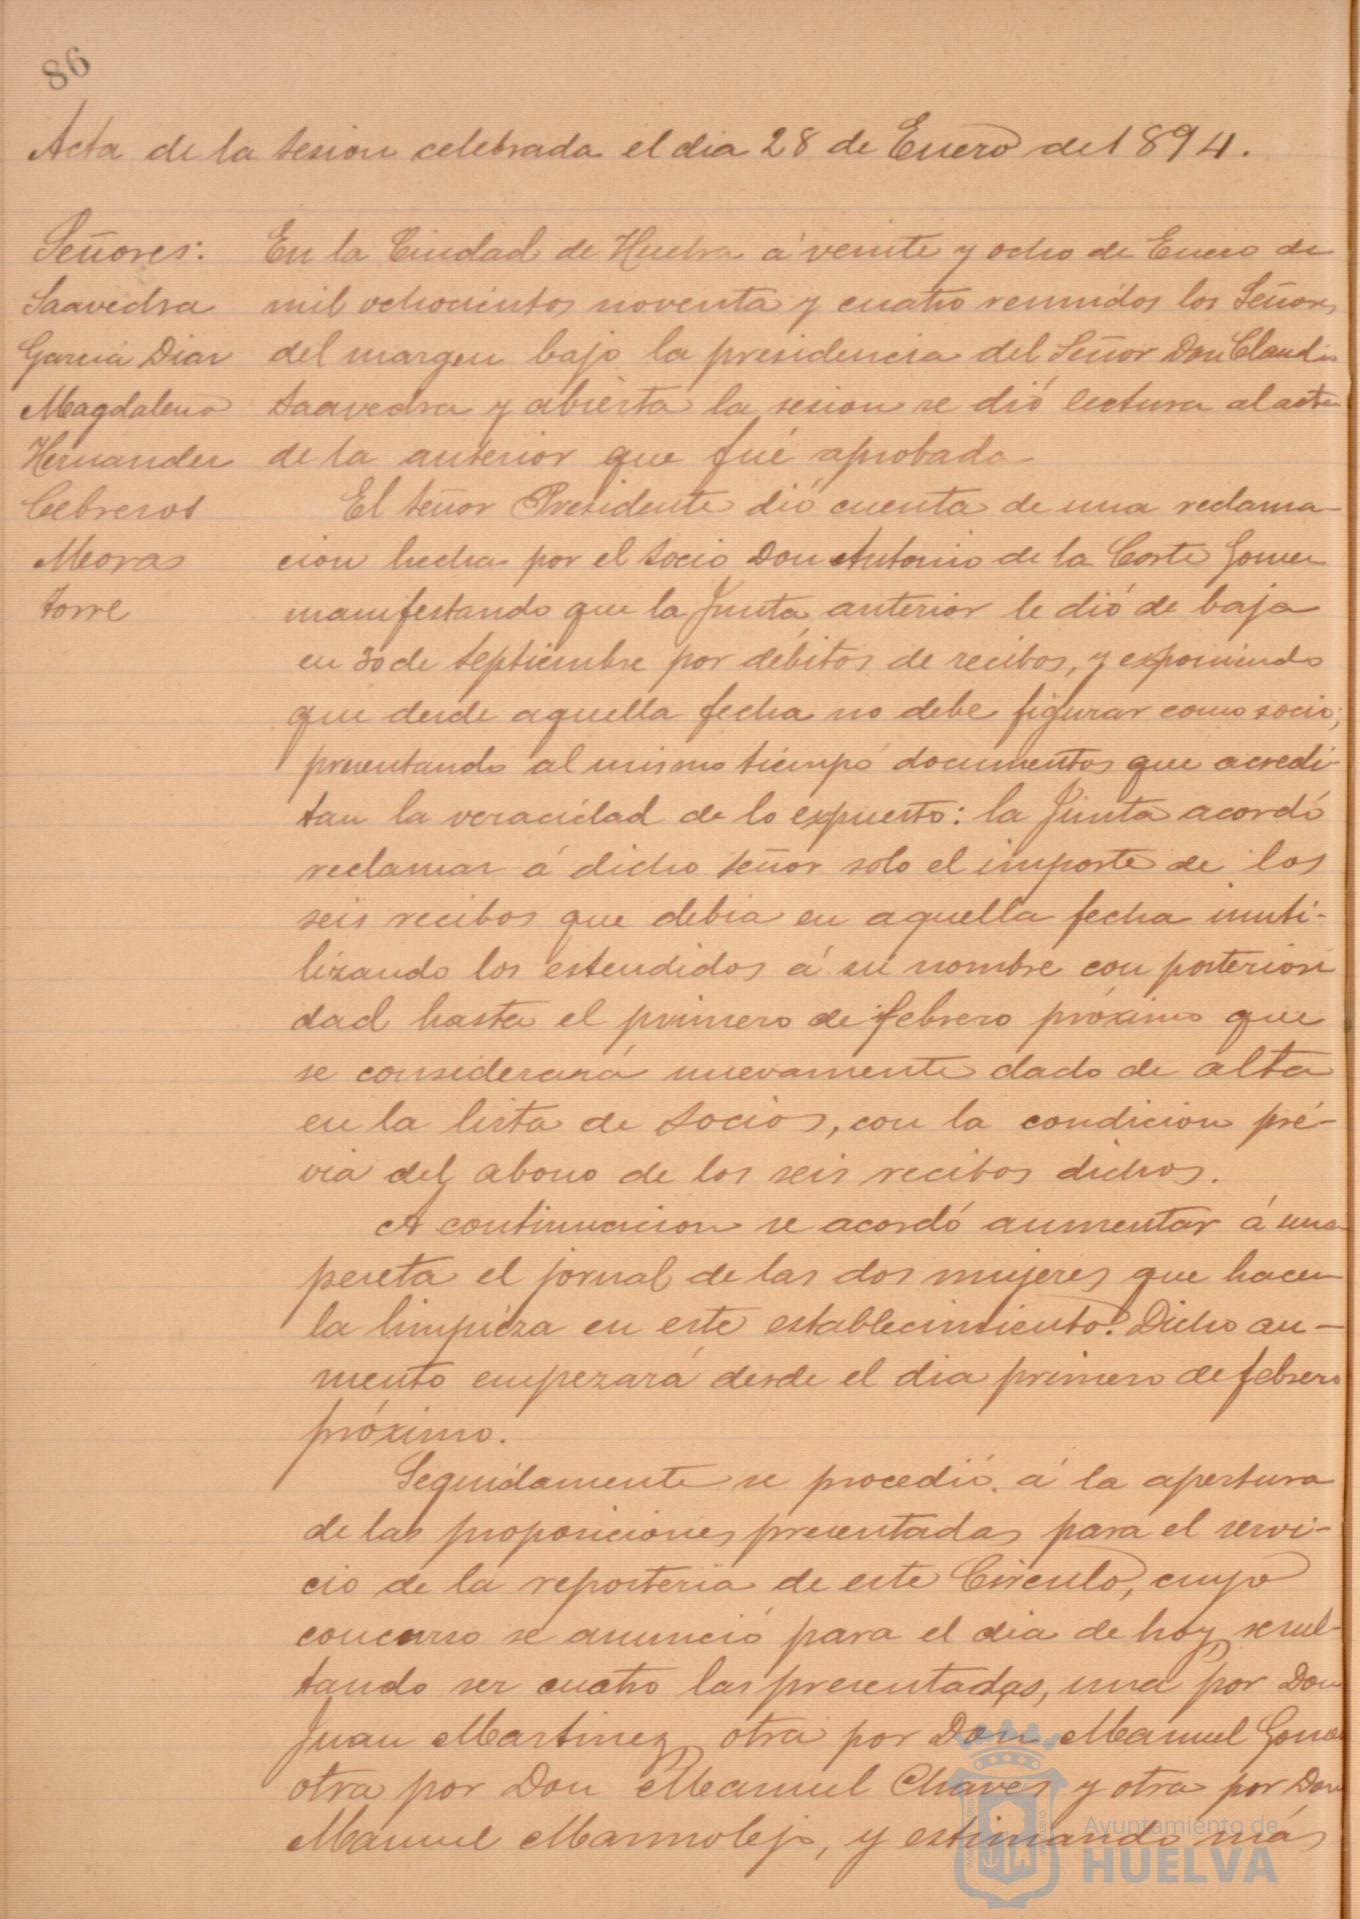 86
Acta de la sesion celebrada el dia 28 de Enero de 1894.
Señores:
Saavedra
Garcia Diaz
Magdaleno
Hernandez
Cebreros
Mora
Torre
En la Ciudad de Huelva á veinte y ocho de Enero de
mil ochocientos noventa y cuatro reunidos los Señores
del margen bajo la presidencia del Señor Don Claudio
Saavedra y abierta la sesion se dió lectura al acta
de la anterior que fué aprobada
El Señor Presidente dió cuenta de una reclama-
cion hecha por el socio Don Antonio de la Corte Gomez
manifestando que la Junta anterior le dió de baja
en 30 de Septiembre por débitos de recibos, y exponiendo
que desde aquella fecha no debe figurar como socio;
presentando al mismo tiempo documentos que acredi-
tan la veracidad de lo expuesto: la Junta acordó
reclamar á dicho Señor solo el importe de los
seis recibos que debia en aquella fecha inuti-
lizando los estendidos á su nombre con posteriori
dad hasta el primero de febrero próximo que
se considerará nuevamente dado de alta
en la lista de socios, con la condicion pré-
via del abono de los seis recibos dichos.
A continuacion se acordó aumentar á una
peseta el jornal de las dos mujeres que hacen
la limpieza en este establecimiento. Dicho au-
mento empezará desde el dia primero de febrero
próximo.
Seguidamente se procedió á la apertura
de las proposiciones presentadas para el servi-
cio de la reposteria de este Circulo, cuyo
concurso se anunció para el dia de hoy, resul-
tando ser cuatro las presentadas, una por Don
Juan Martinez, otra por Don Manuel
otra por Don Manuel Chaves y otra por Don
Manuel Marmolejo, y estimando más
Ayuntamiento de
HUELVA